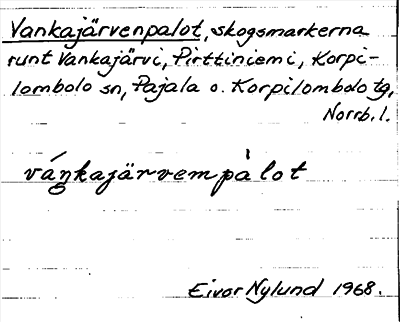 Vankajärvenpalot, skogsmarkerna
runt Vankajärvi, Pirttiniemi, Korpi-
lombolo sn, Pajala o. Korpilombolo tg,
Norrb. l.
váŋkajärvempàlot
Eivor Nylund 1968.